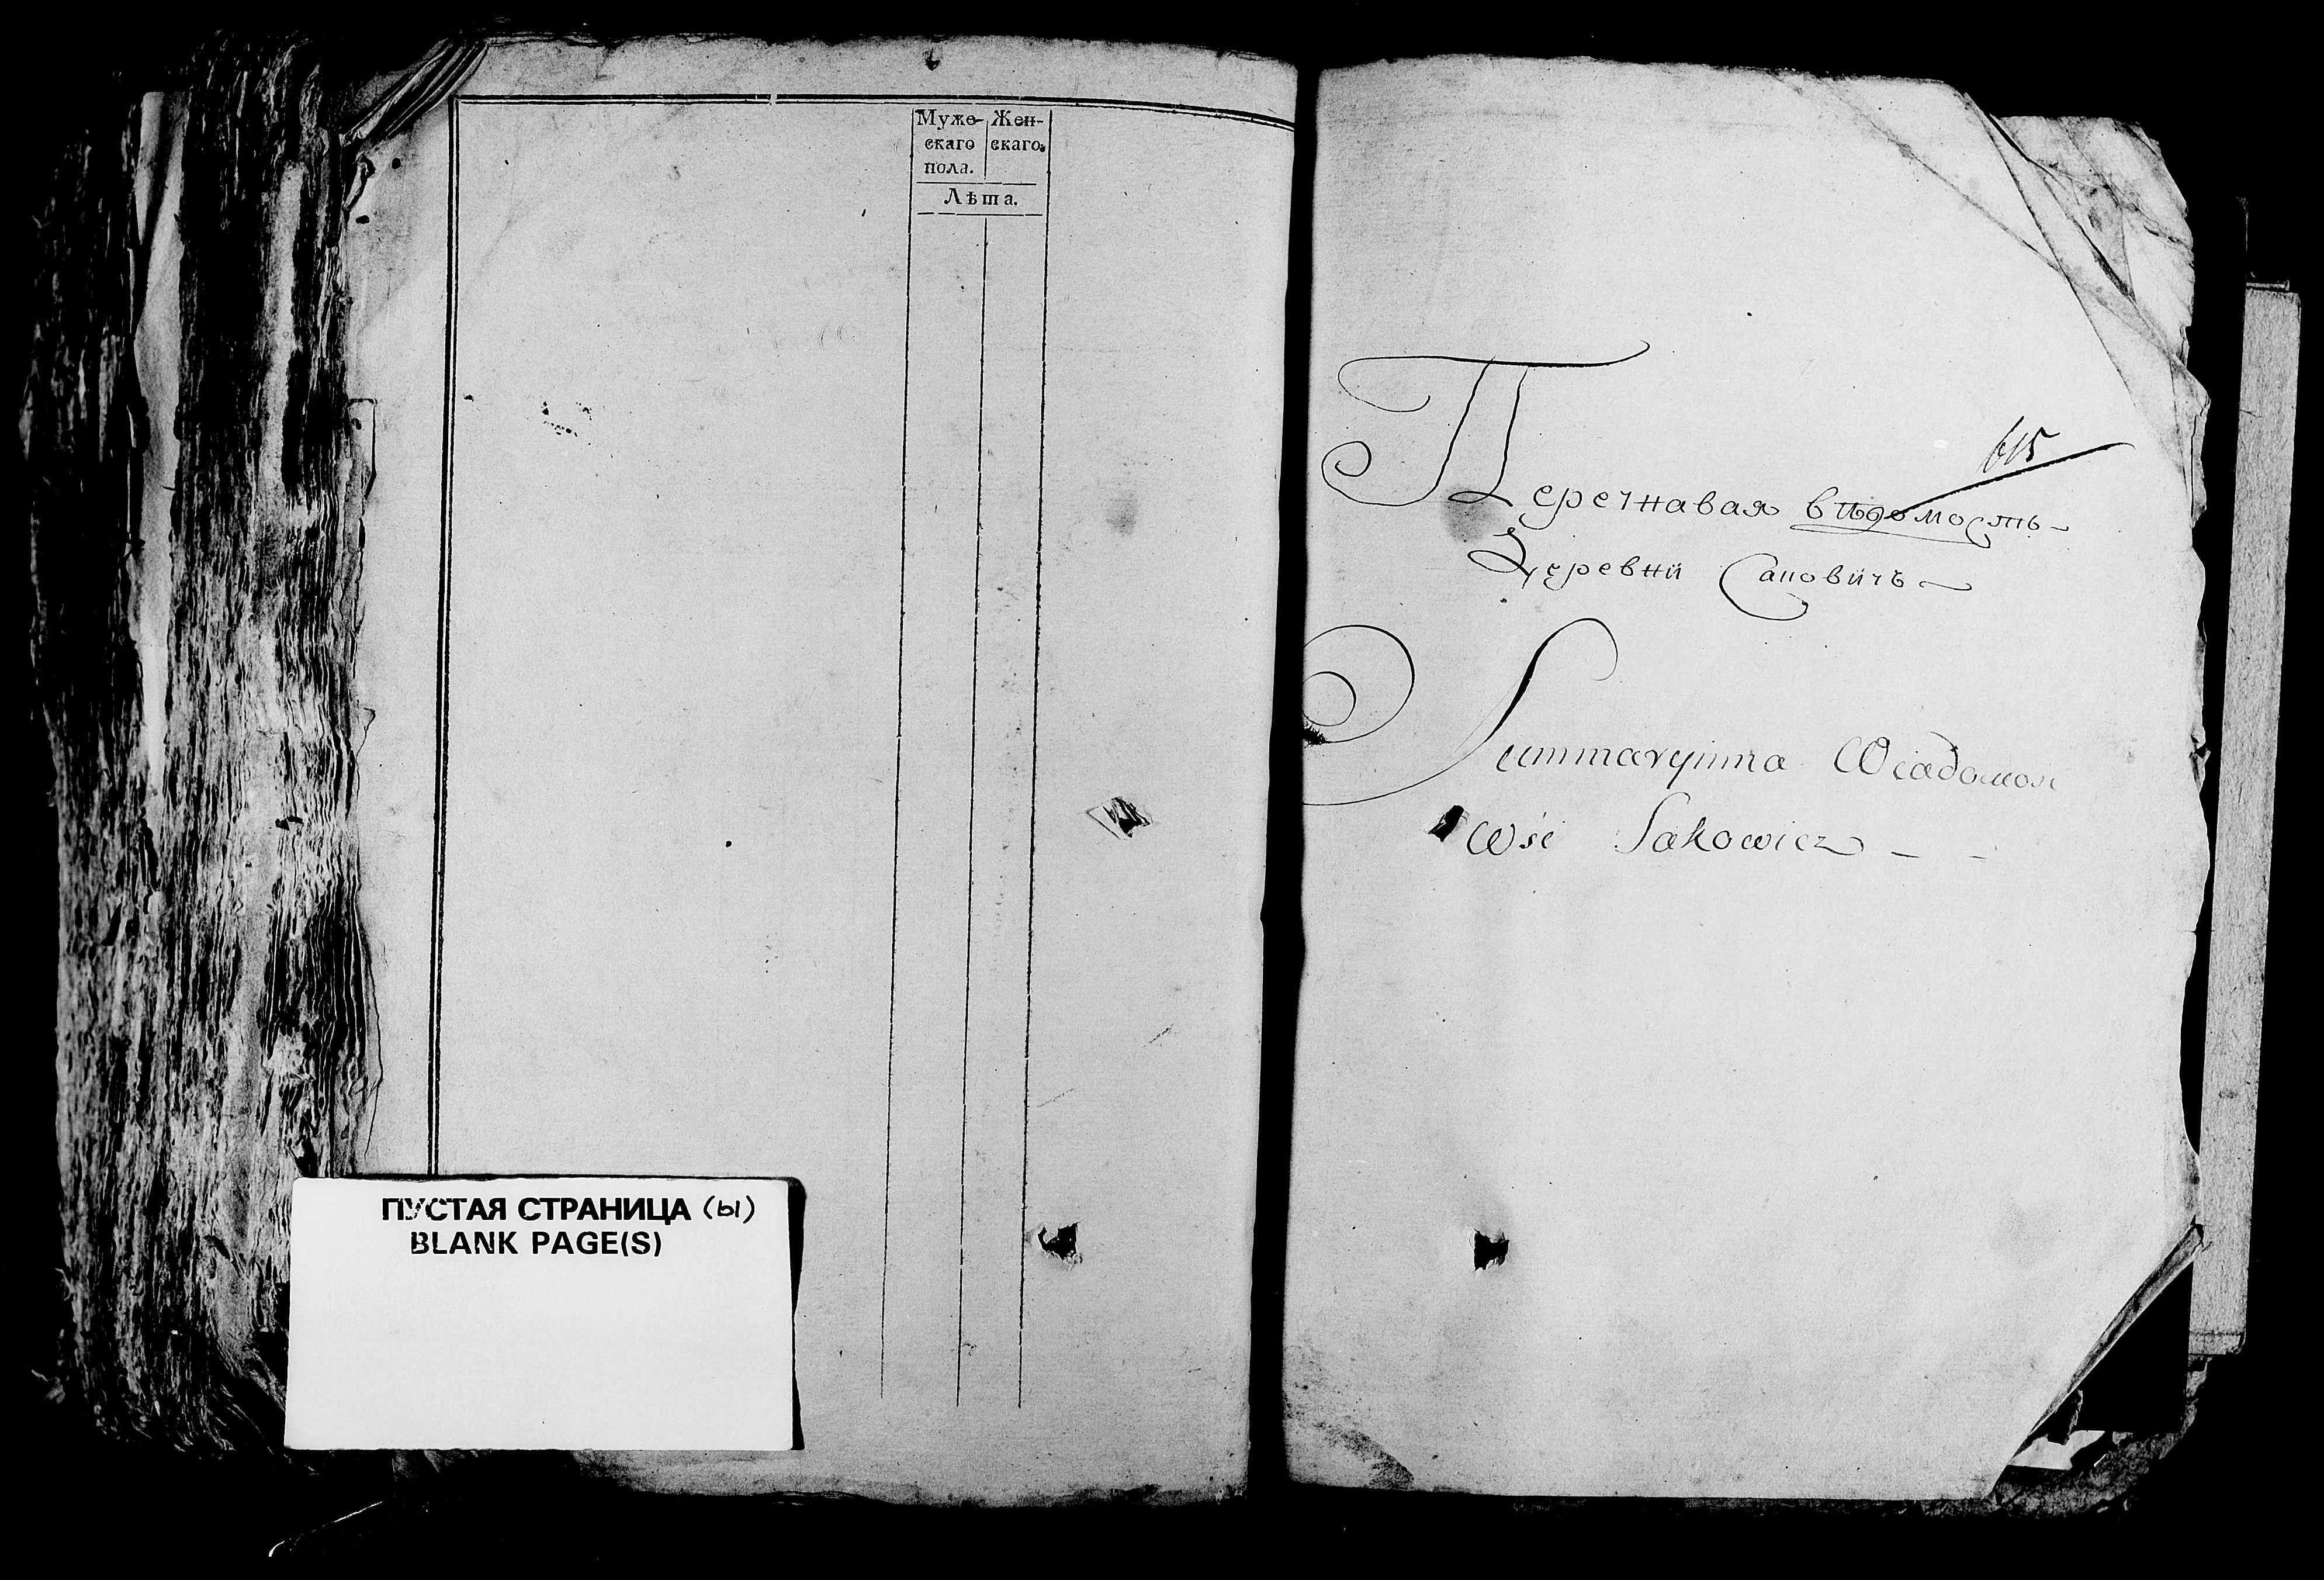 Муже- Жен-
скаго скаго.
пола.
Лѣта.
ПУСТАЯ СТРАНИЦА (Ы)
BLANK PAGE(S)
615
Перечнавая вѣдомость
Деревни Саковичъ
Summaryinna Wiadomość
Wsi Sakowicz